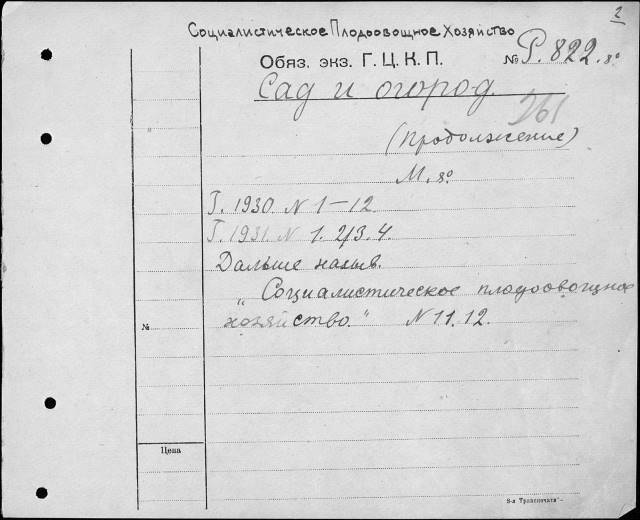 2
Социалистическое Плодоовощное Хозяйство
Обяз. экз. Г. Ц. К. П. № Р. 822. 8º
Сад и огород.
261
(Продолжение)
М. 8º
Г. 1930. N 1–12.
Г. 1931. N 1. 2/3. 4.
Дальше назыв.
„Социалистическое плодоовощное
хозяйство." N 11. 12.
№
Цена
8-я Транспечати